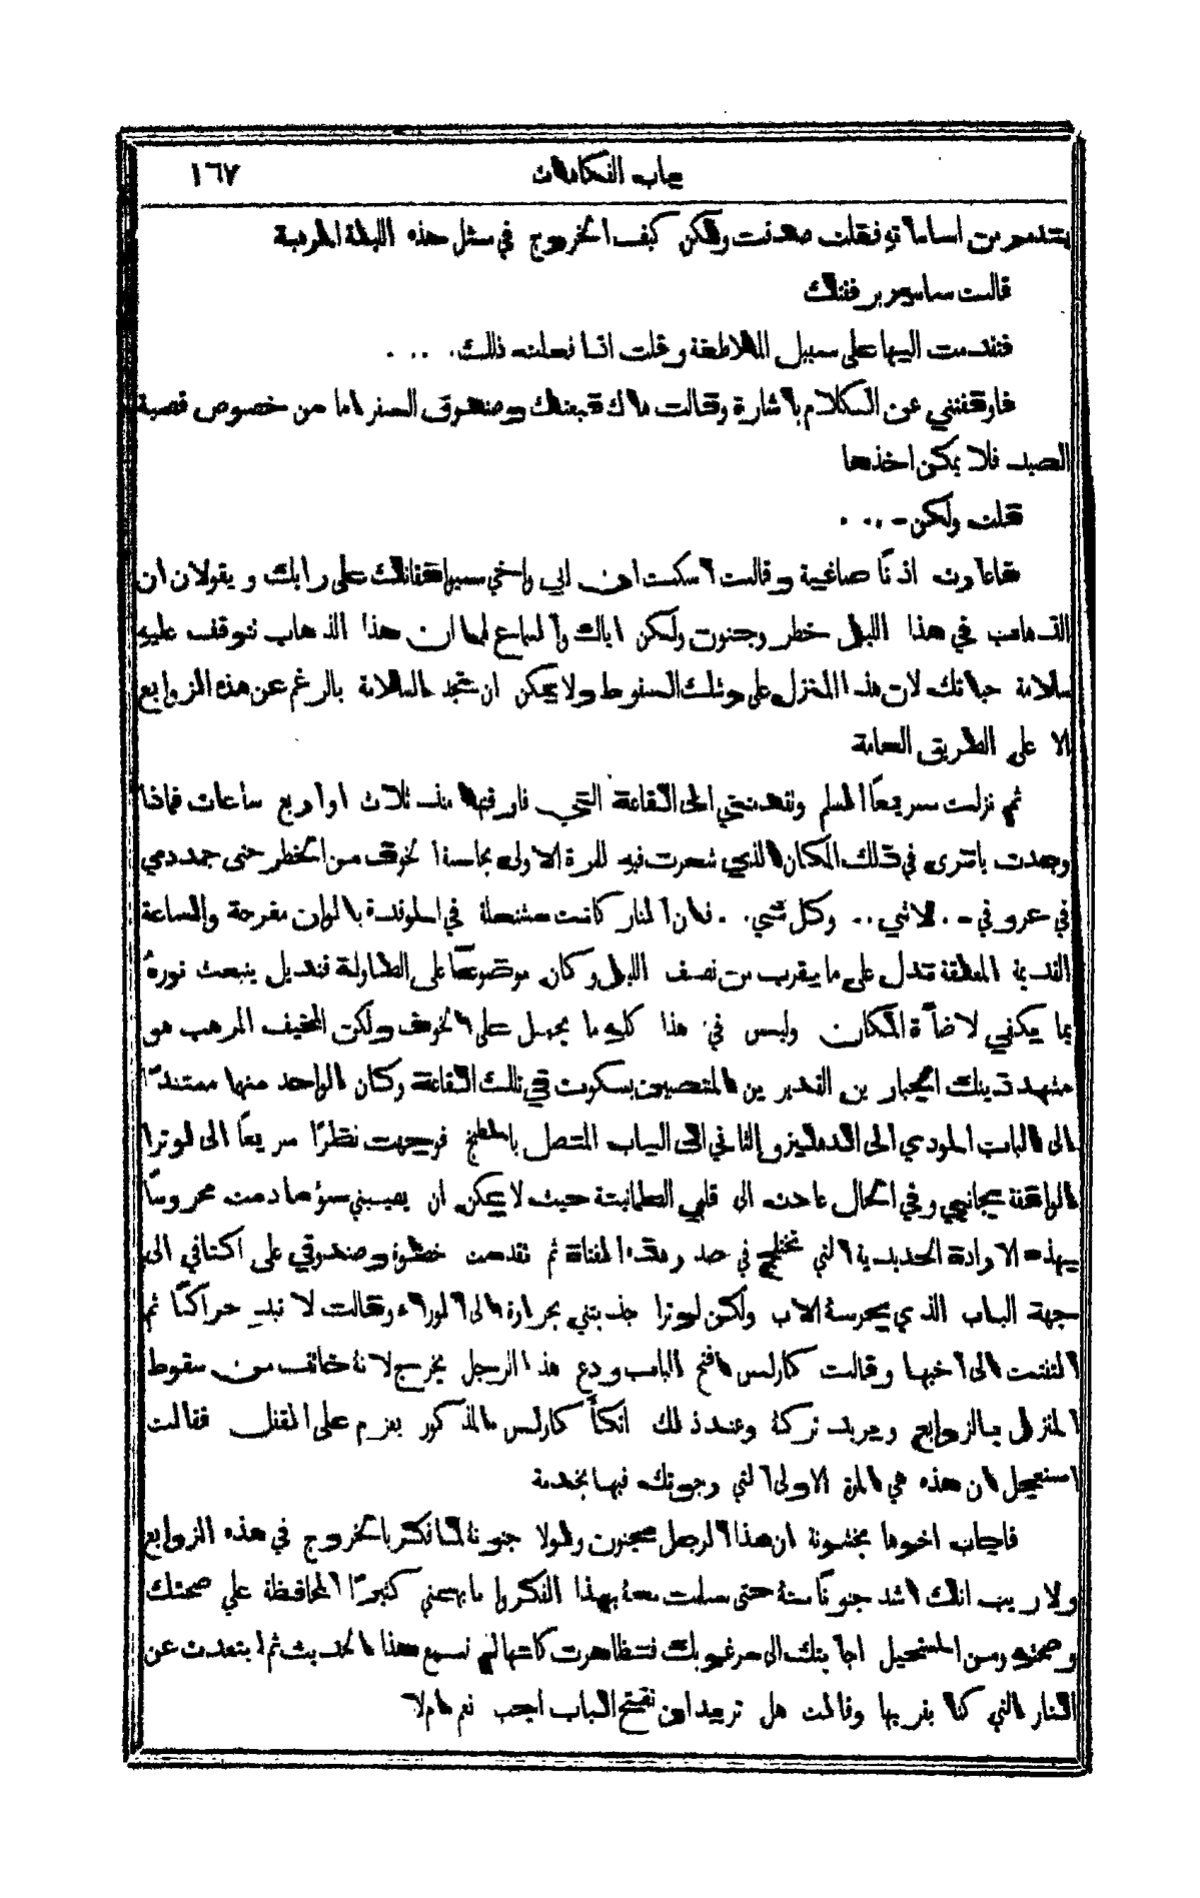 باب الفكاهات ١٦٧
من اساساته فقلت صدقت ولكن كيف الخروج في مثل هذه الليلة المرهبة
قالت ساسعى برفقتك
فتقدمت اليها على سبيل الملاطفة وقلت اذا فعلت ذلك. ...
فاوقفتني عن الكلام باشارة وقالت هاك قبعتك وصندوق السفر اما من خصوص قصبة
الصيد فلا يمكن اخذها
قلت ولكن - ...
فاعارت اذنًا صاغية وقالت اسكت ان ابي واخي سيوافقانك على رايك ويقولان ان
الذهاب في هذا الليل خطر وجنون ولكن اياك والسماع لهما ان هذا الذهاب تتوقف عليه
سلامة حياتك لان هذا المنزل على وشك السقوط ولا يمكن ان تجد السلامة بالرغم عن هذه الزوابع
الا على الطريق العامة
ثم نزلت سريعًا السلم وتقدمتني الى القاعة التي فارقتها منذ ثلاث او اربع ساعات فماذا
وجدت يا ترى في ذلك المكان الذي شعرت فيه للمرة الاولى بحاسة الخوف من الخطر حتى جمد دمي
في عروقي - . لا شي .. وكل شي. . فان النار كانت مشتعلة في الموقدة بالوان مفرحة والساعة
القديمة المعلقة تدل على ما يقرب من نصف الليل وكان موضوعًا على الطاولة قنديل ينبعث نورهُ
بما يكفي لاضاءة المكان وليس في هذا كله ما يحمل على الخوف ولكن المخيف المرهب هو
مشهد ذينك الجبارين القديرين المنتصبين بسكوت في تلك القاعة وكان الواحد منها مستندًا
الى الباب المودي الى الدهليز والثاني الى الباب المتصل بالمطبخ فوجهت نظرًا سريعًا الى لوترا
الواقفة بجانبي وفي الحال عادت الى قلبي الطمانينة حيث لا يمكن ان يصيبني سؤ ما دمت محروسًا
بهذه الارادة الحديدية التي تختلج في صدر هذه الفتاة ثم تقدمت خطوة وصندوقي على اكتافي الى
جهة الباب الذي يحرسهُ الاب ولكن لوترا جذبتني بحرارة الى الوراء وقالت لا تبدِ حراكًا ثم
التفتت الى اخيها وقالت كارلس افتح الباب ودع هذا الرجل يخرج لانهُ خائف من سقوط
المنزل بالزوابع ويريد تركهُ وعند ذلك اتكأ كارلس المذكور بعزم على المقفل فقالت
استعجل ان هذه هي المرة الاولى التي رجوتك فيها بخدمة
فاجاب اخوها بخشونة ان هذا الرجل مجنون ولولا جنونهُ لما افتكر بالخروج في هذه الزوابع
ولا ريب انك اشد جنونًا منهُ حتى سلمت معهُ بهذا الفكر وما يهمني كثيرًا المحافظة على صحتك
وصحته ومن المستحيل اجابتك الى مرغوبك فتظاهرت كانها لم تسمع هذا الحديث ثم ابتعدت عن
النار التي كنا بقربها وقالت هل تريد ان تفتح الباب اجب نعم ام لا